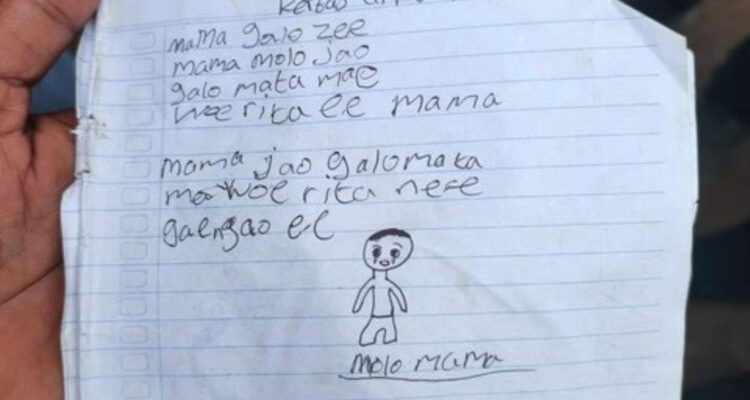 mama galo zee
mama molo jao
galo mata mae
woe rita ee mama
mama jao galo mata
mae woe rita ne-e
gaengao e-e
molo mama